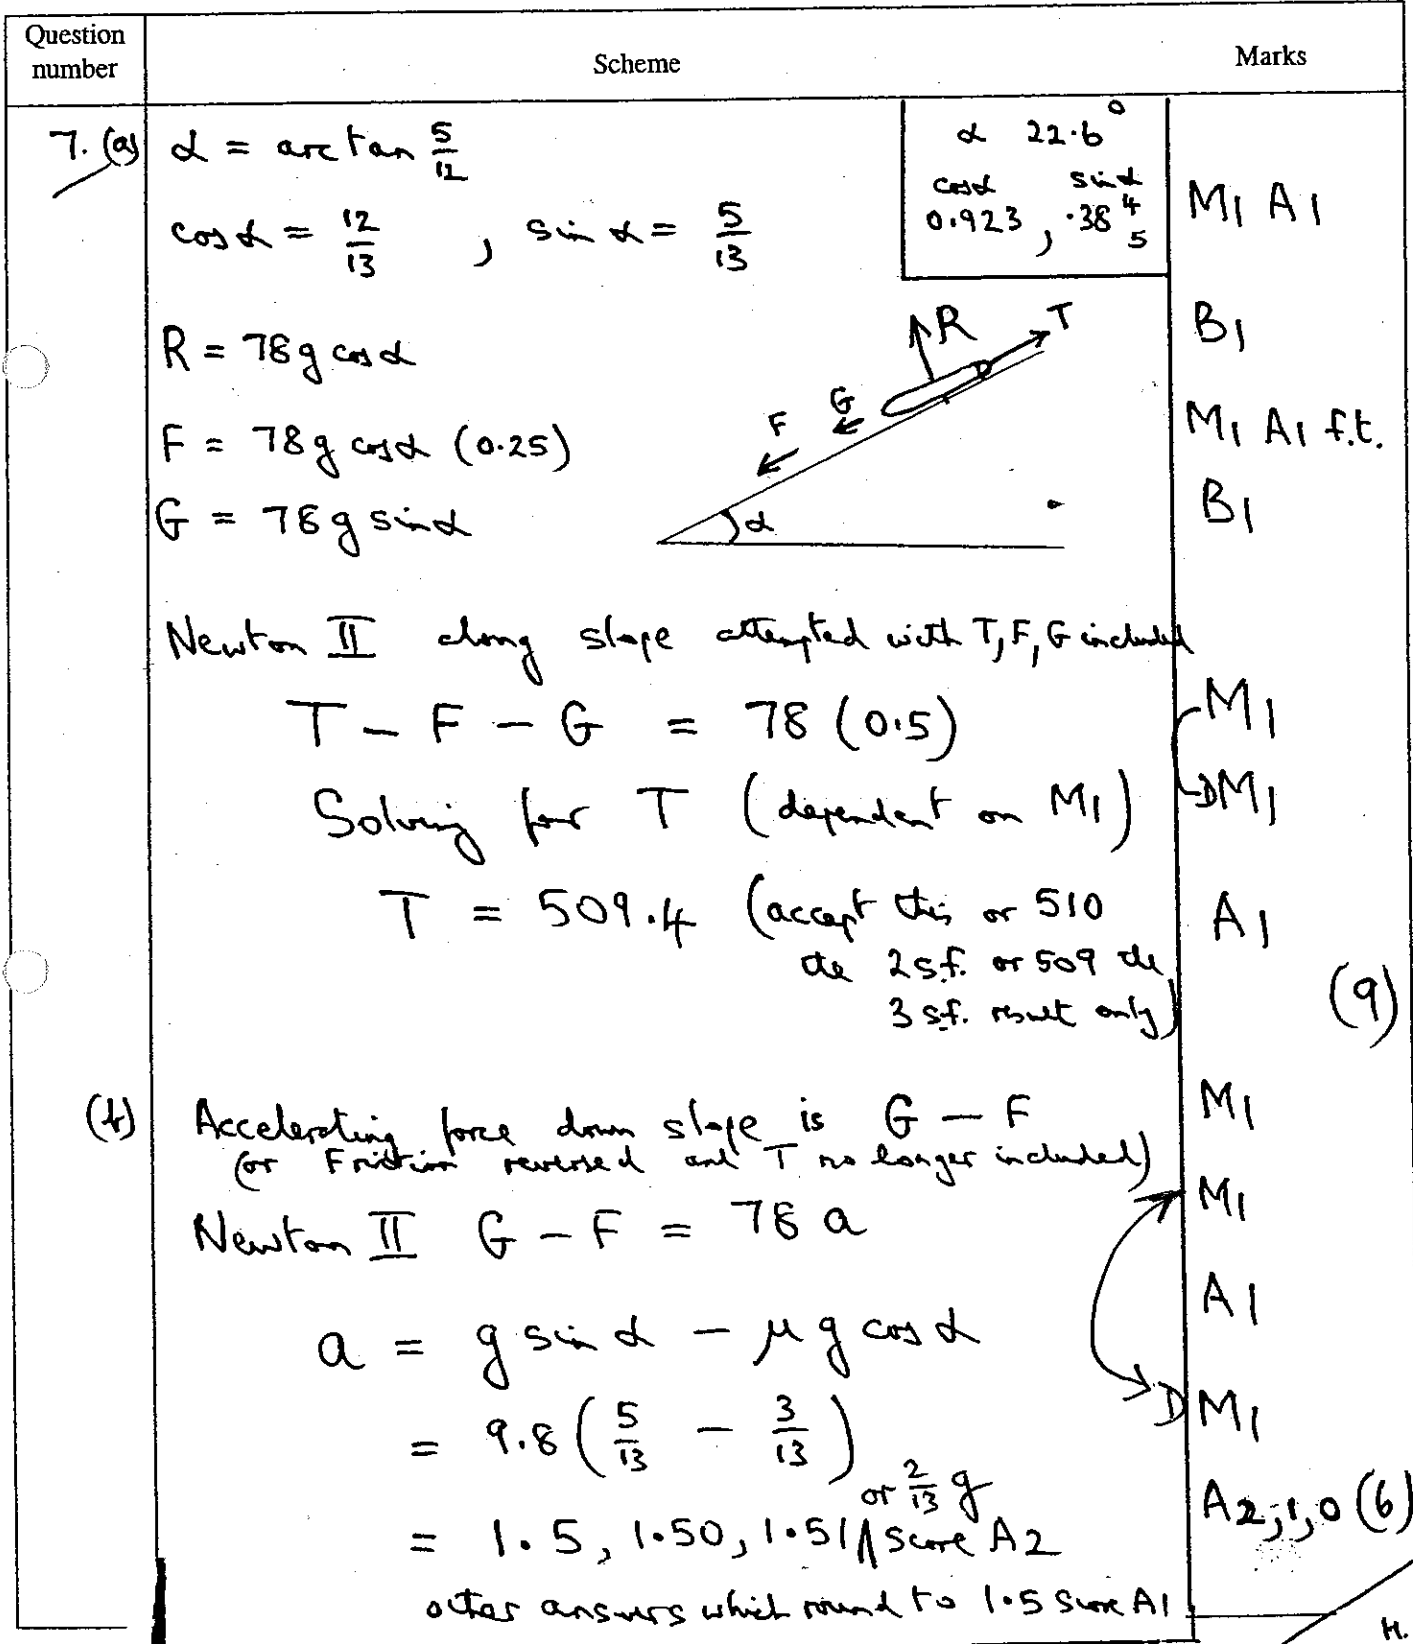 Question number
Scheme
Marks
7. (a) α = arctan 5/12
α 22.6°
cosα sinα
0.923, .38 4/5
M1 A1
cosα = 12/13 , sinα = 5/13
R = 78g cosα
B1
R
T
G
F
α
F = 78g cosα (0.25)
M1 A1 f.t.
G = 78g sinα
B1
Newton II along slope attempted with T, F, G included
T - F - G = 78 (0.5)
M1
Solving for T (dependent on M1)
DM1
T = 509.4 (accept this or 510
the 2sf. or 509 the
3sf. result only)
A1
(9)
(b) Accelerating force down slope is G - F
M1
(or Friction reversed and T no longer included)
Newton II G - F = 78 a
M1
A1
a = g sinα - μg cosα
= 9.8 (5/13 - 3/13)
DM1
or 2/13 g
= 1.5, 1.50, 1.51 score A2
A2,1,0 (6)
other answers which round to 1.5 score A1
H.